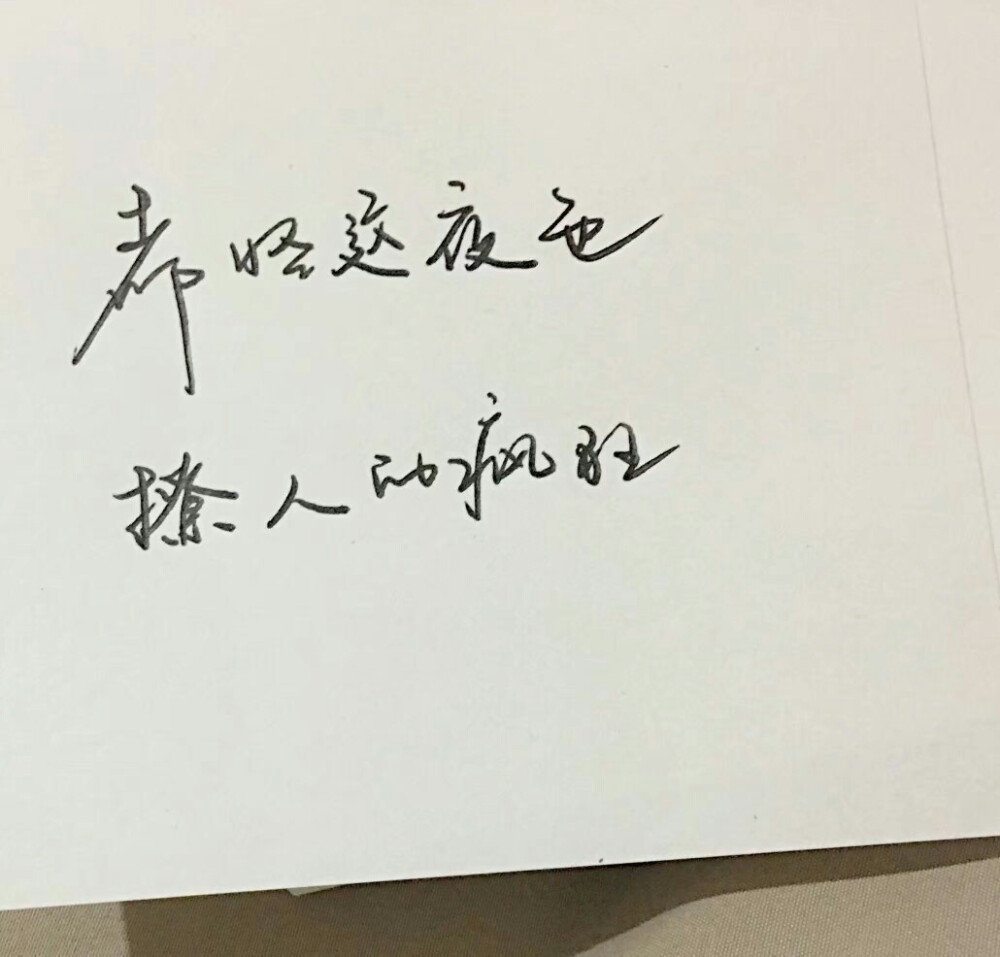 都怪这夜色
撩人的疯狂